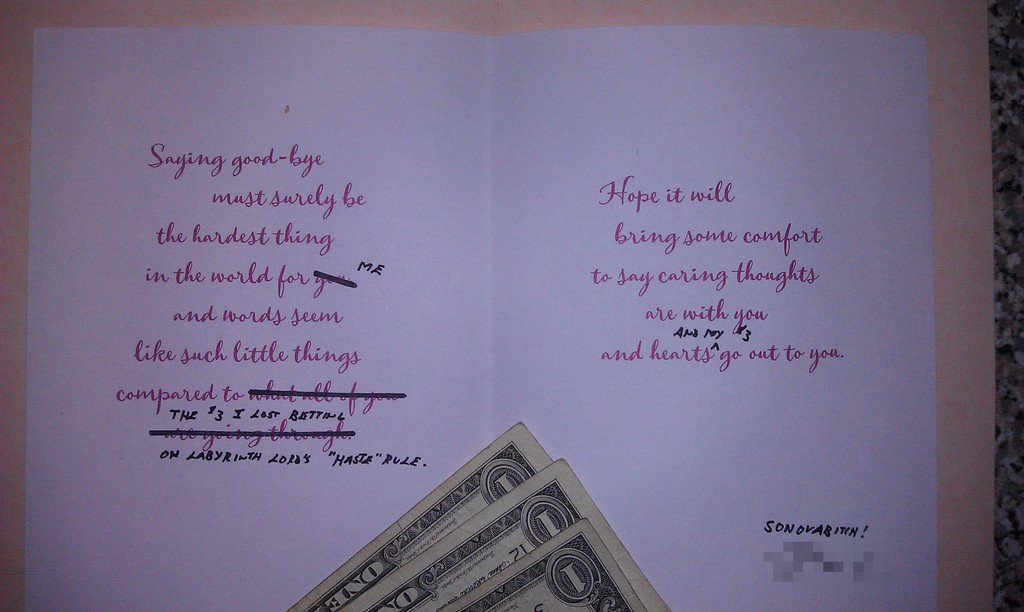 Saying good-bye
must surely be
the hardest thing
in the world for you ME
and words seem
like such little things
compared to what all of you
THE $3 I LOST BETTING
are going through.
ON LABYRINTH LORD'S "HASTE" RULE.
Hope it will
bring some comfort
to say caring thoughts
are with you
AND MY $3
and hearts ^ go out to you.
SONOVABITCH!
ONE
1
ON
1
12
1